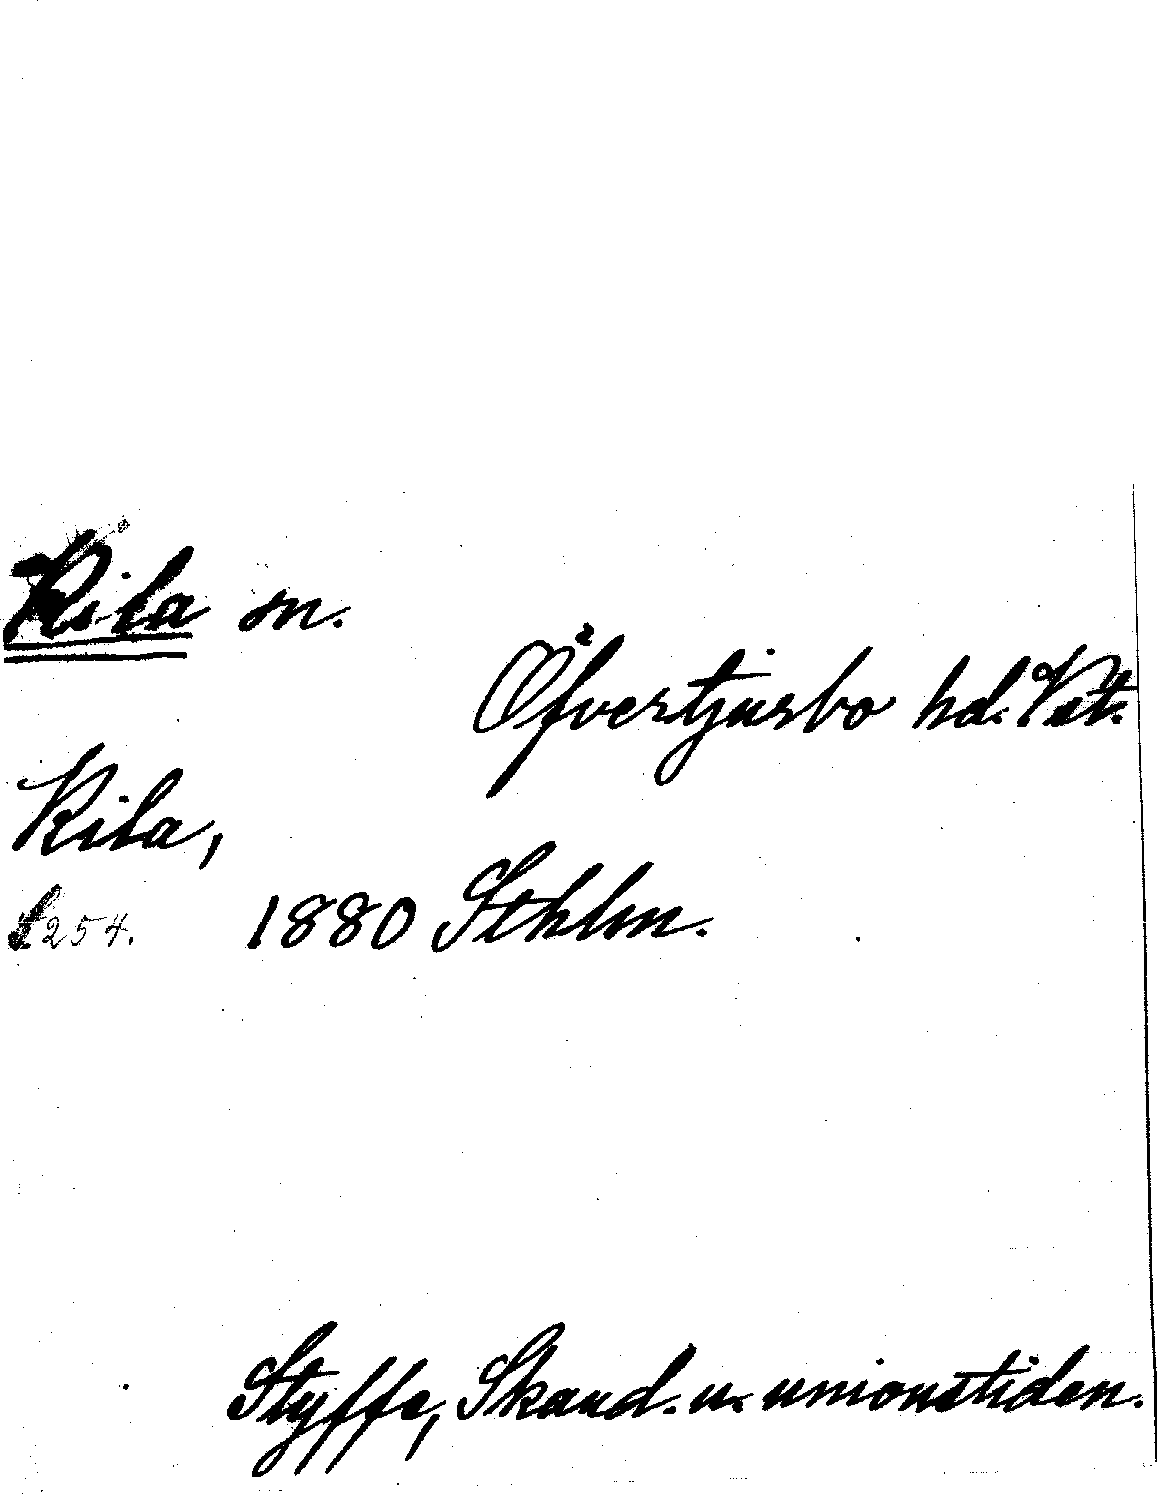 Kila sn.
Öfvertjurbo hd. Vst.
Kila,
s. 254. 1880 Sthlm.
Styffe, Skand. u. unionstiden.